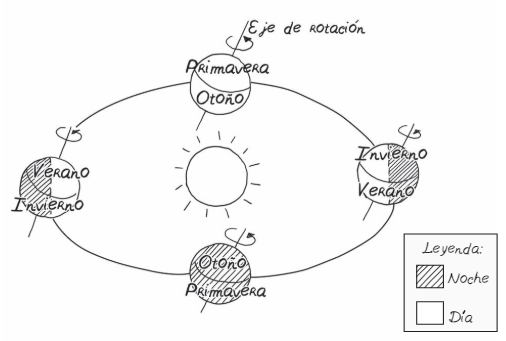 Eje de rotación
Primavera
Otoño
Verano
Invierno
Invierno
Verano
Otoño
Primavera
Leyenda:
Noche
Día